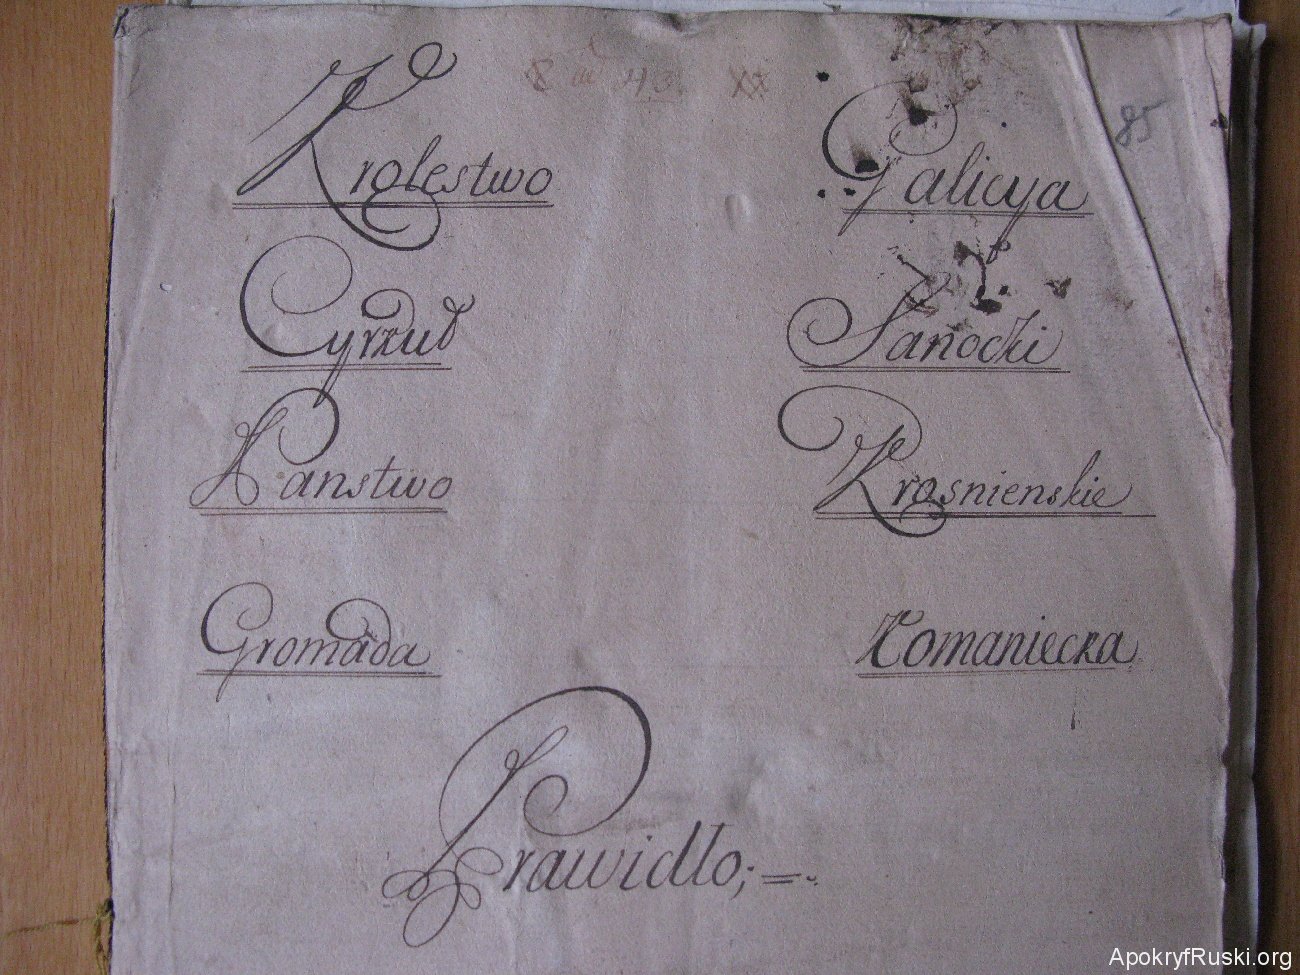 85
Krolestwo Galicya
Cyrkuł Sanocki
Panstwo Krosnienskie
Gromada Komaniecka
Prawidło;=
ApokryfRuski.org